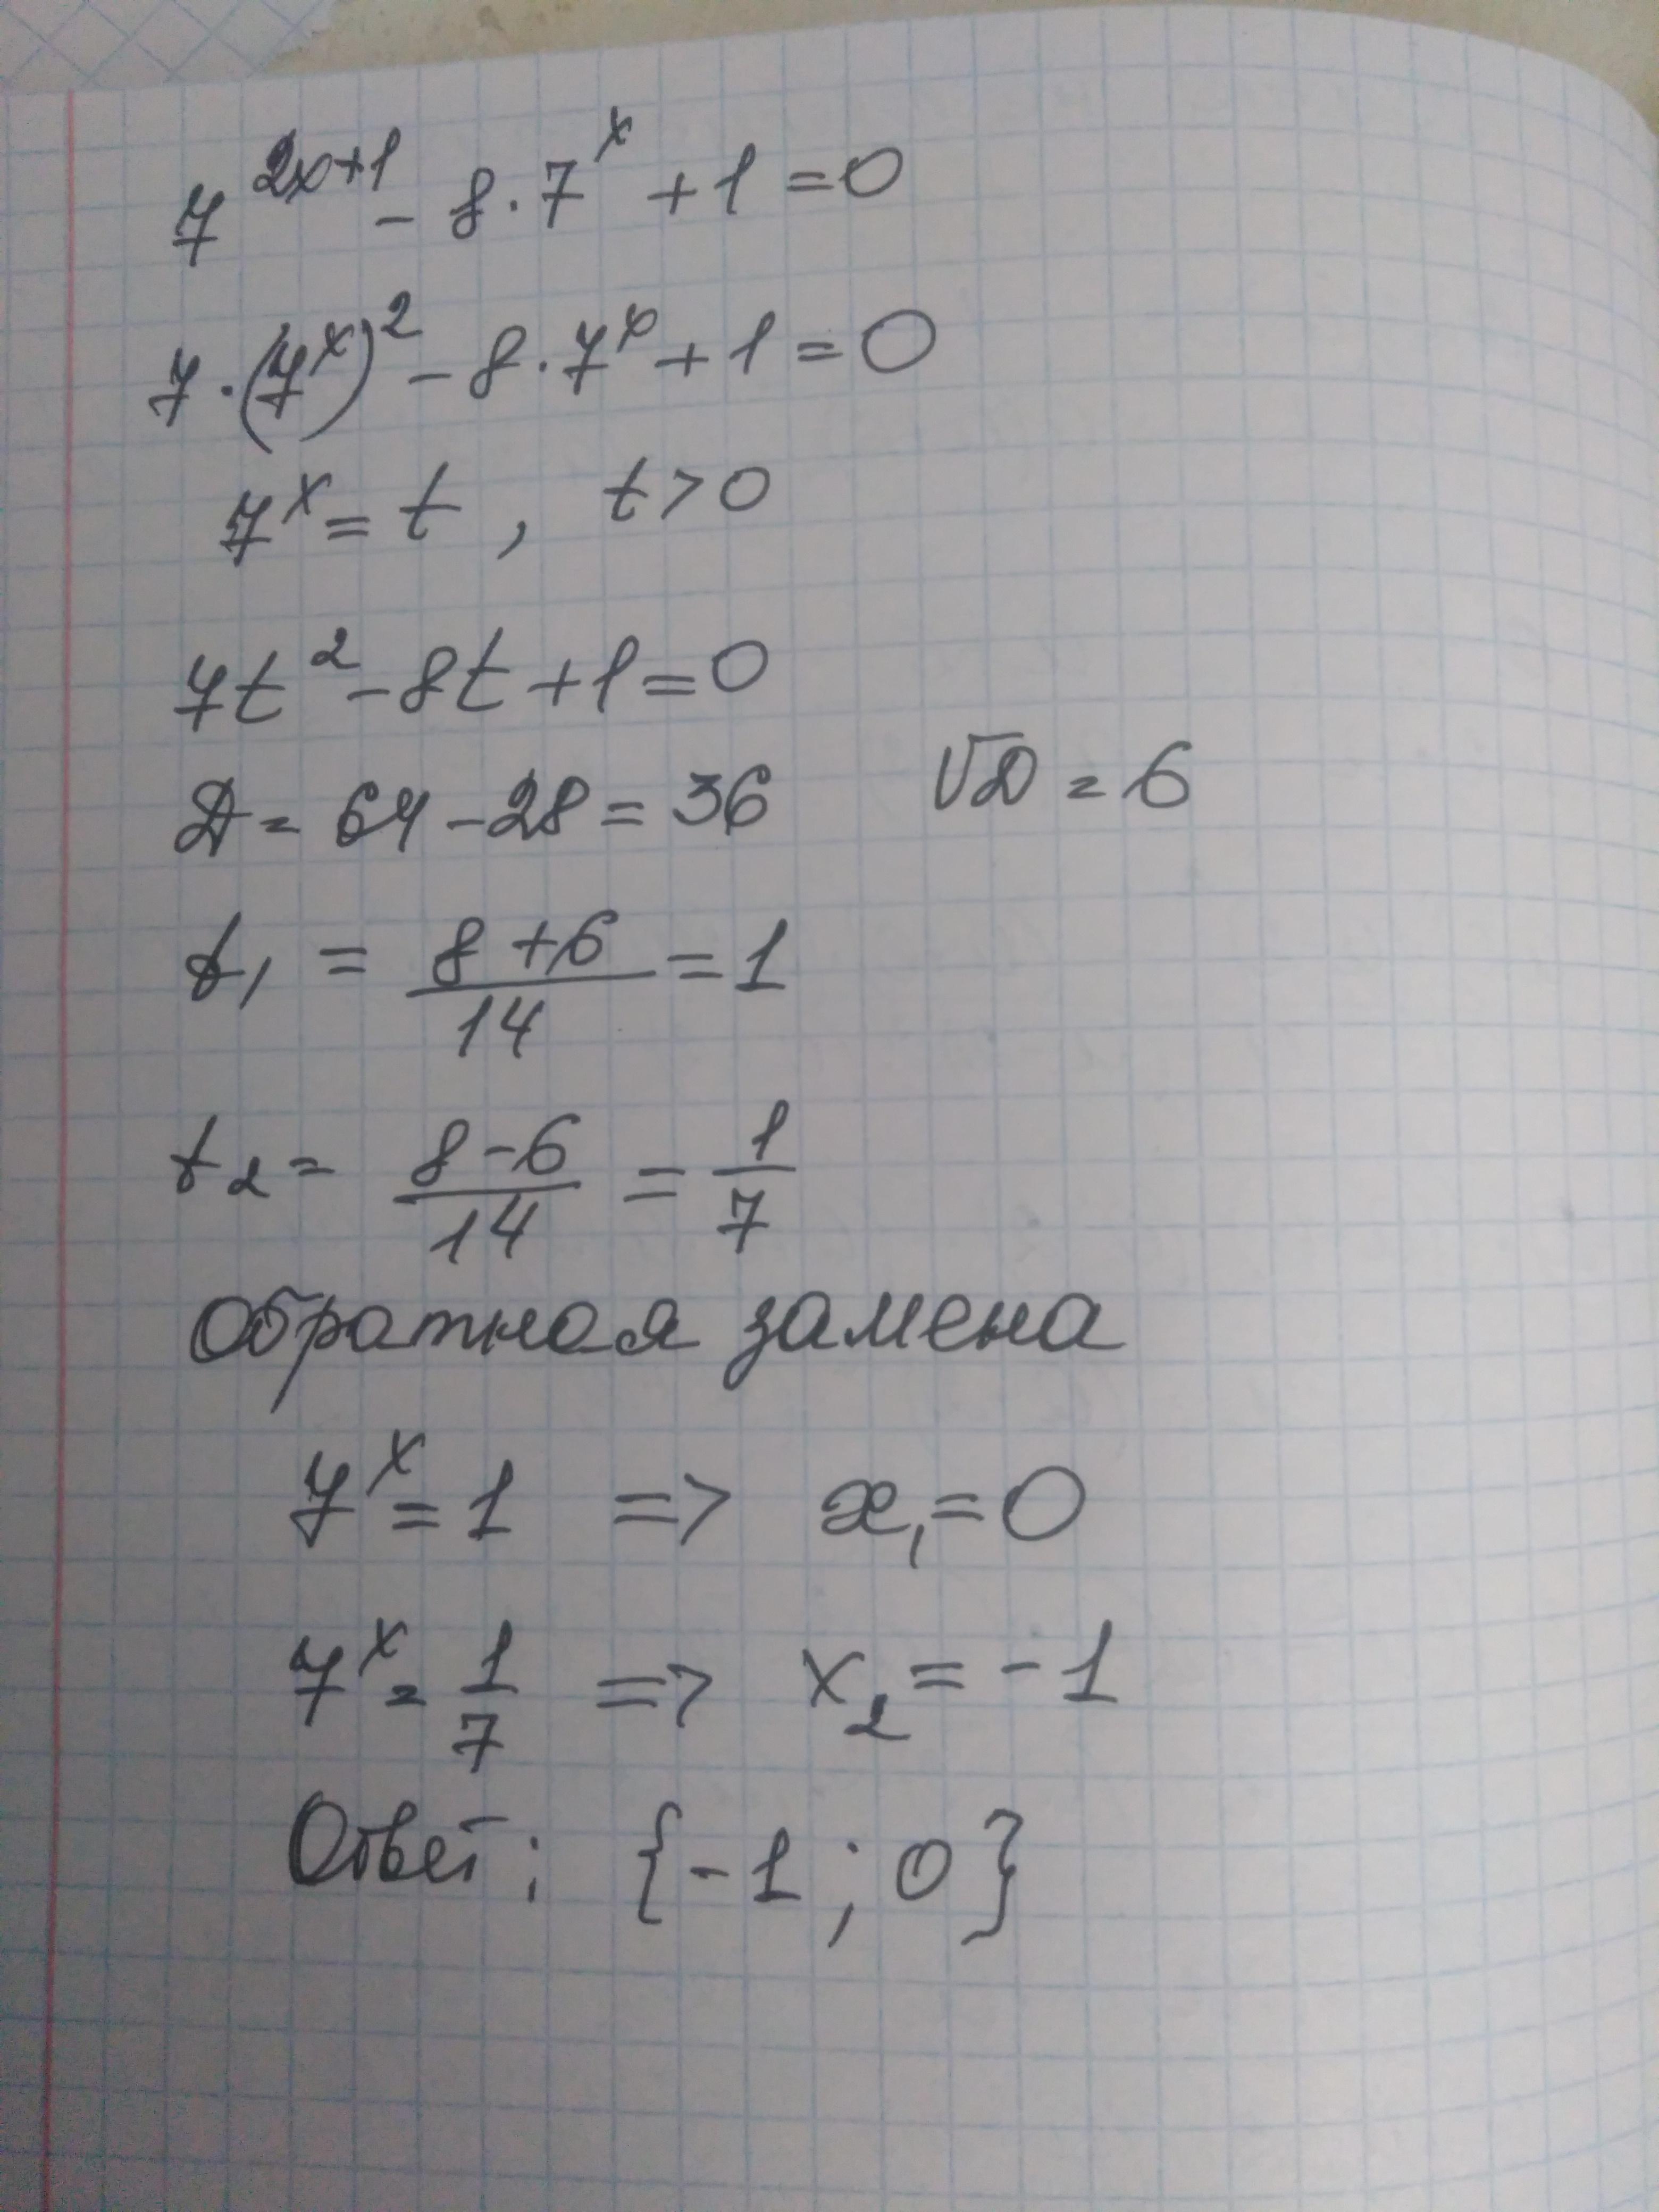 7^{2x+1} - 8·7^x + 1 = 0
7·(7^x)^2 - 8·7^x + 1 = 0
7^x = t, t > 0
7t^2 - 8t + 1 = 0
D = 64 - 28 = 36 √D = 6
t_1 = \frac{8+6}{14} = 1
t_2 = \frac{8-6}{14} = \frac{1}{7}
Обратная замена
7^x = 1 => x_1 = 0
7^x = \frac{1}{7} => x_2 = -1
Ответ: {-1; 0}